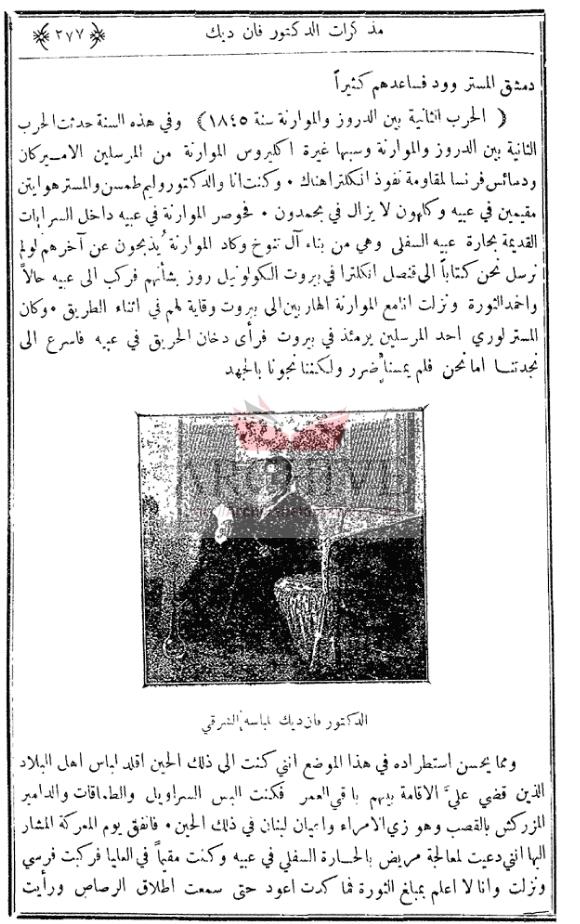 مذكرات الدكتور فان ديك
﴿ ٢٧٧ ﴾
دمشق المستر وود فساعدهم كثيراً
( الحرب الثانية بين الدروز والموارنة سنة ١٨٤٥ ) وفي هذه السنة حدثت الحرب
الثانية بين الدروز والموارنة وسببها غيرة اكليروس الموارنة من المرسلين الاميركان
ودسائس فرنسا لمقاومة نفوذ انكلترا هناك ٠ وكنت انا والدكتور وليم طمسن والمستر هوايتن
مقيمين في عبيه وكلهون لا يزال في بحمدون ٠ فحوصر الموارنة في عبيه داخل السرايات
القديمة بحارة عبيه السفلى وهي من بناء آل تنوخ وكاد الموارنة يُذبحون عن آخرهم لولم
نرسل نحن كتاباً الى قنصل انكلترا في بيروت الكولونيل روز بشأنهم فركب الى عبيه حالاً
واخمد الثورة ونزلت انا مع الموارنة الهاربين الى بيروت وقاية لهم في اثناء الطريق ٠ وكان
المستر لوري احد المرسلين يومئذ في بيروت فرأى دخان الحريق في عبيه فاسرع الى
نجدتنا اما نحن فلم يمسنا ضرر ولكننا نجونا بالجهد
ARCHIVE
الدكتور فان ديك بلباسه الشرقي
ومما يحسن استطراده في هذا الموضع انني كنت الى ذلك الحين اقلد لباس اهل البلاد
الذين قضي عليَّ الاقامة بينهم باقي العمر فكنت البس السراويل والطماقات والدامر
المزركش بالقصب وهو زي الامراء واعيان لبنان في ذلك الحين ٠ فاتفق يوم المعركة المشار
اليها انني دعيت لمعالجة مريض بالحارة السفلى في عبيه وكنت مقيماً في العليا فركبت فرسي
ونزلت وانا لا اعلم بمبلغ الثورة فما كدت اعود حتى سمعت اطلاق الرصاص ورأيت